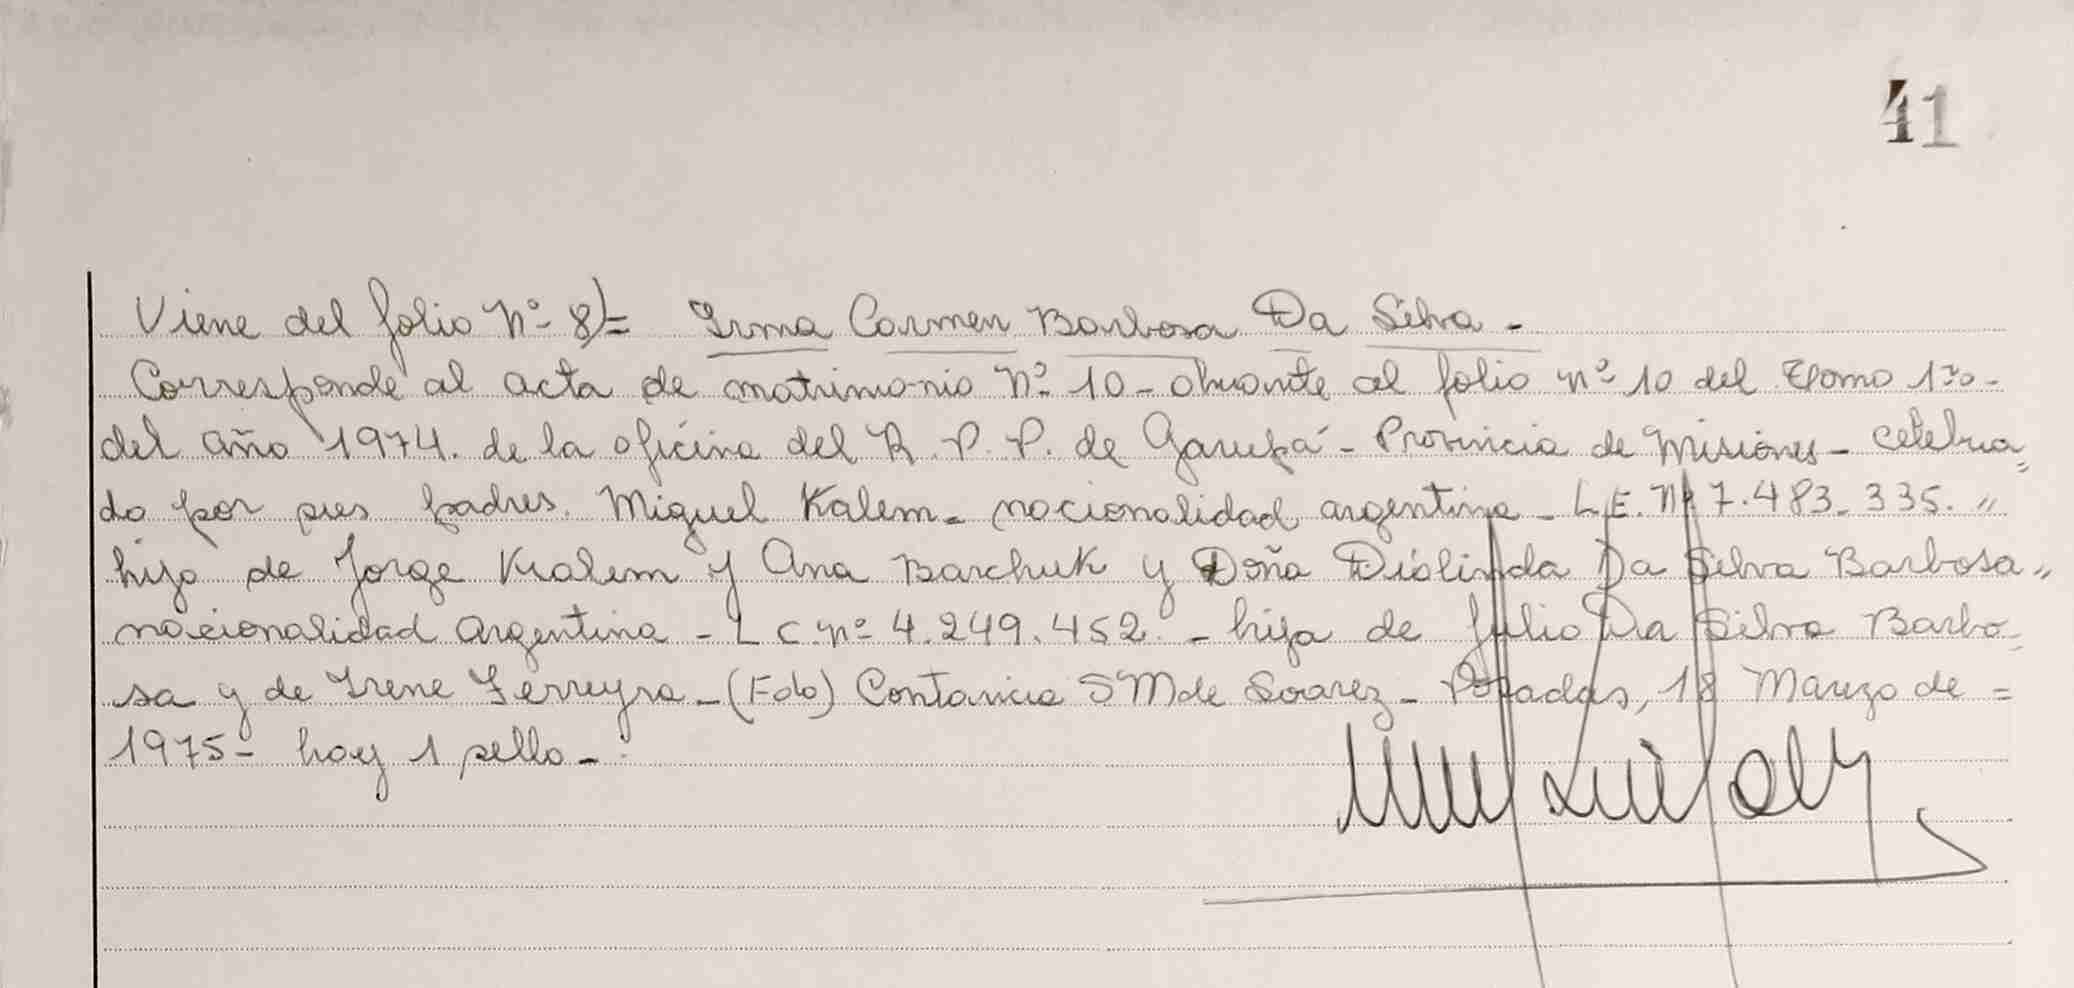 41
Viene del folio Nº 8)= Irma Carmen Barbosa Da Silva -
Corresponde al acta de matrimonio Nº 10 - obrante al folio nº 10 del Tomo 1ro -
del año 1974. de la oficina del R. P. P. de Garupá - Provincia de Misiones - celebra=
do por sus padres. Miguel Kalem - nacionalidad argentina - L.E. Nº 7.483.335. "
hijo de Jorge Kalem y Ana Barchuk y Doña Diolinda Da Silva Barbosa "
nacionalidad argentina - L C. nº 4.249.452. - hija de Julio Da Silva Barbo=
sa y de Irene Ferreyra - (Fdo) Contancia S M de Soarez - Posadas, 18 Marzo de =
1975 - hay 1 sello - .